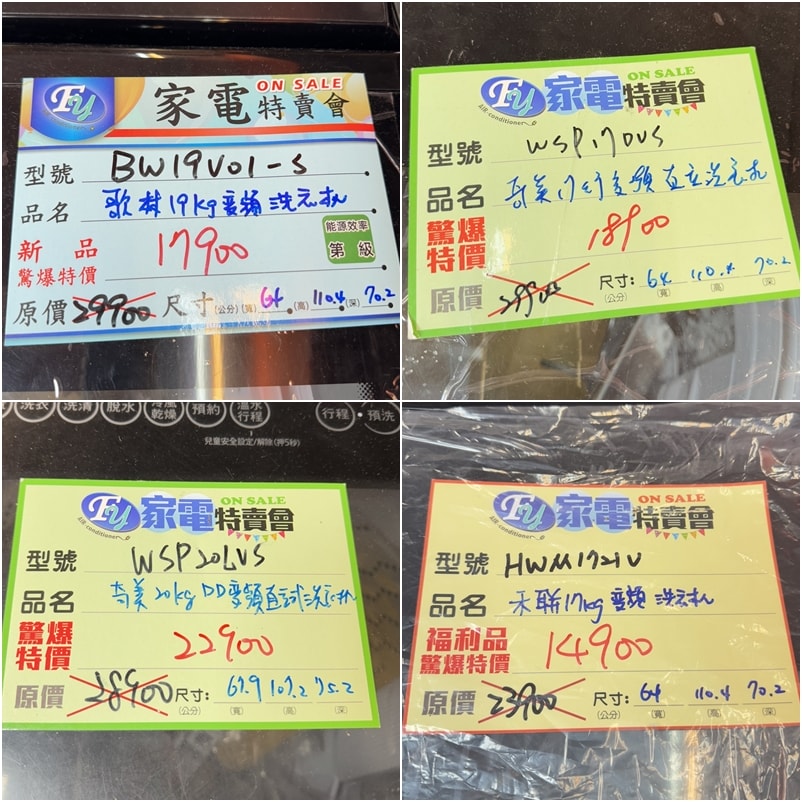 Fy
AIR-conditioner
家電特賣會
ON SALE
型號 BW19V01-S
品名 歌林19kg變頻洗衣机
新品
驚爆特價 17900
能源效率
第 級
原價 29900 尺寸(公分)(寬) 64 (高) 110.4 (深) 70.2
Fy
AIR-conditioner
家電特賣會
ON SALE
型號 WSP170VS
品名 奇美17kg變頻直立洗衣机
驚爆
特價 18900
原價
尺寸: 64 110.4 70.2
(公分) (寬) (高) (深)
洗衣 洗清 脫水 冷風乾燥 預約 溫水行程 行程・預洗
兒童安全設定/解除(押5秒)
Fy
AIR-conditioner
家電特賣會
ON SALE
型號 WSP20LVS
品名 奇美20kg DD變頻直試洗衣机
驚爆
特價 22900
原價 28900 尺寸: 67.9 107.2 75.2
(公分) (寬) (高) (深)
Fy
AIR-conditioner
家電特賣會
ON SALE
型號 HWM1721V
品名 禾聯17kg變頻洗衣机
福利品
驚爆特價 14900
原價 23900 尺寸: 64 110.4 70.2
(公分) (寬) (高) (深)